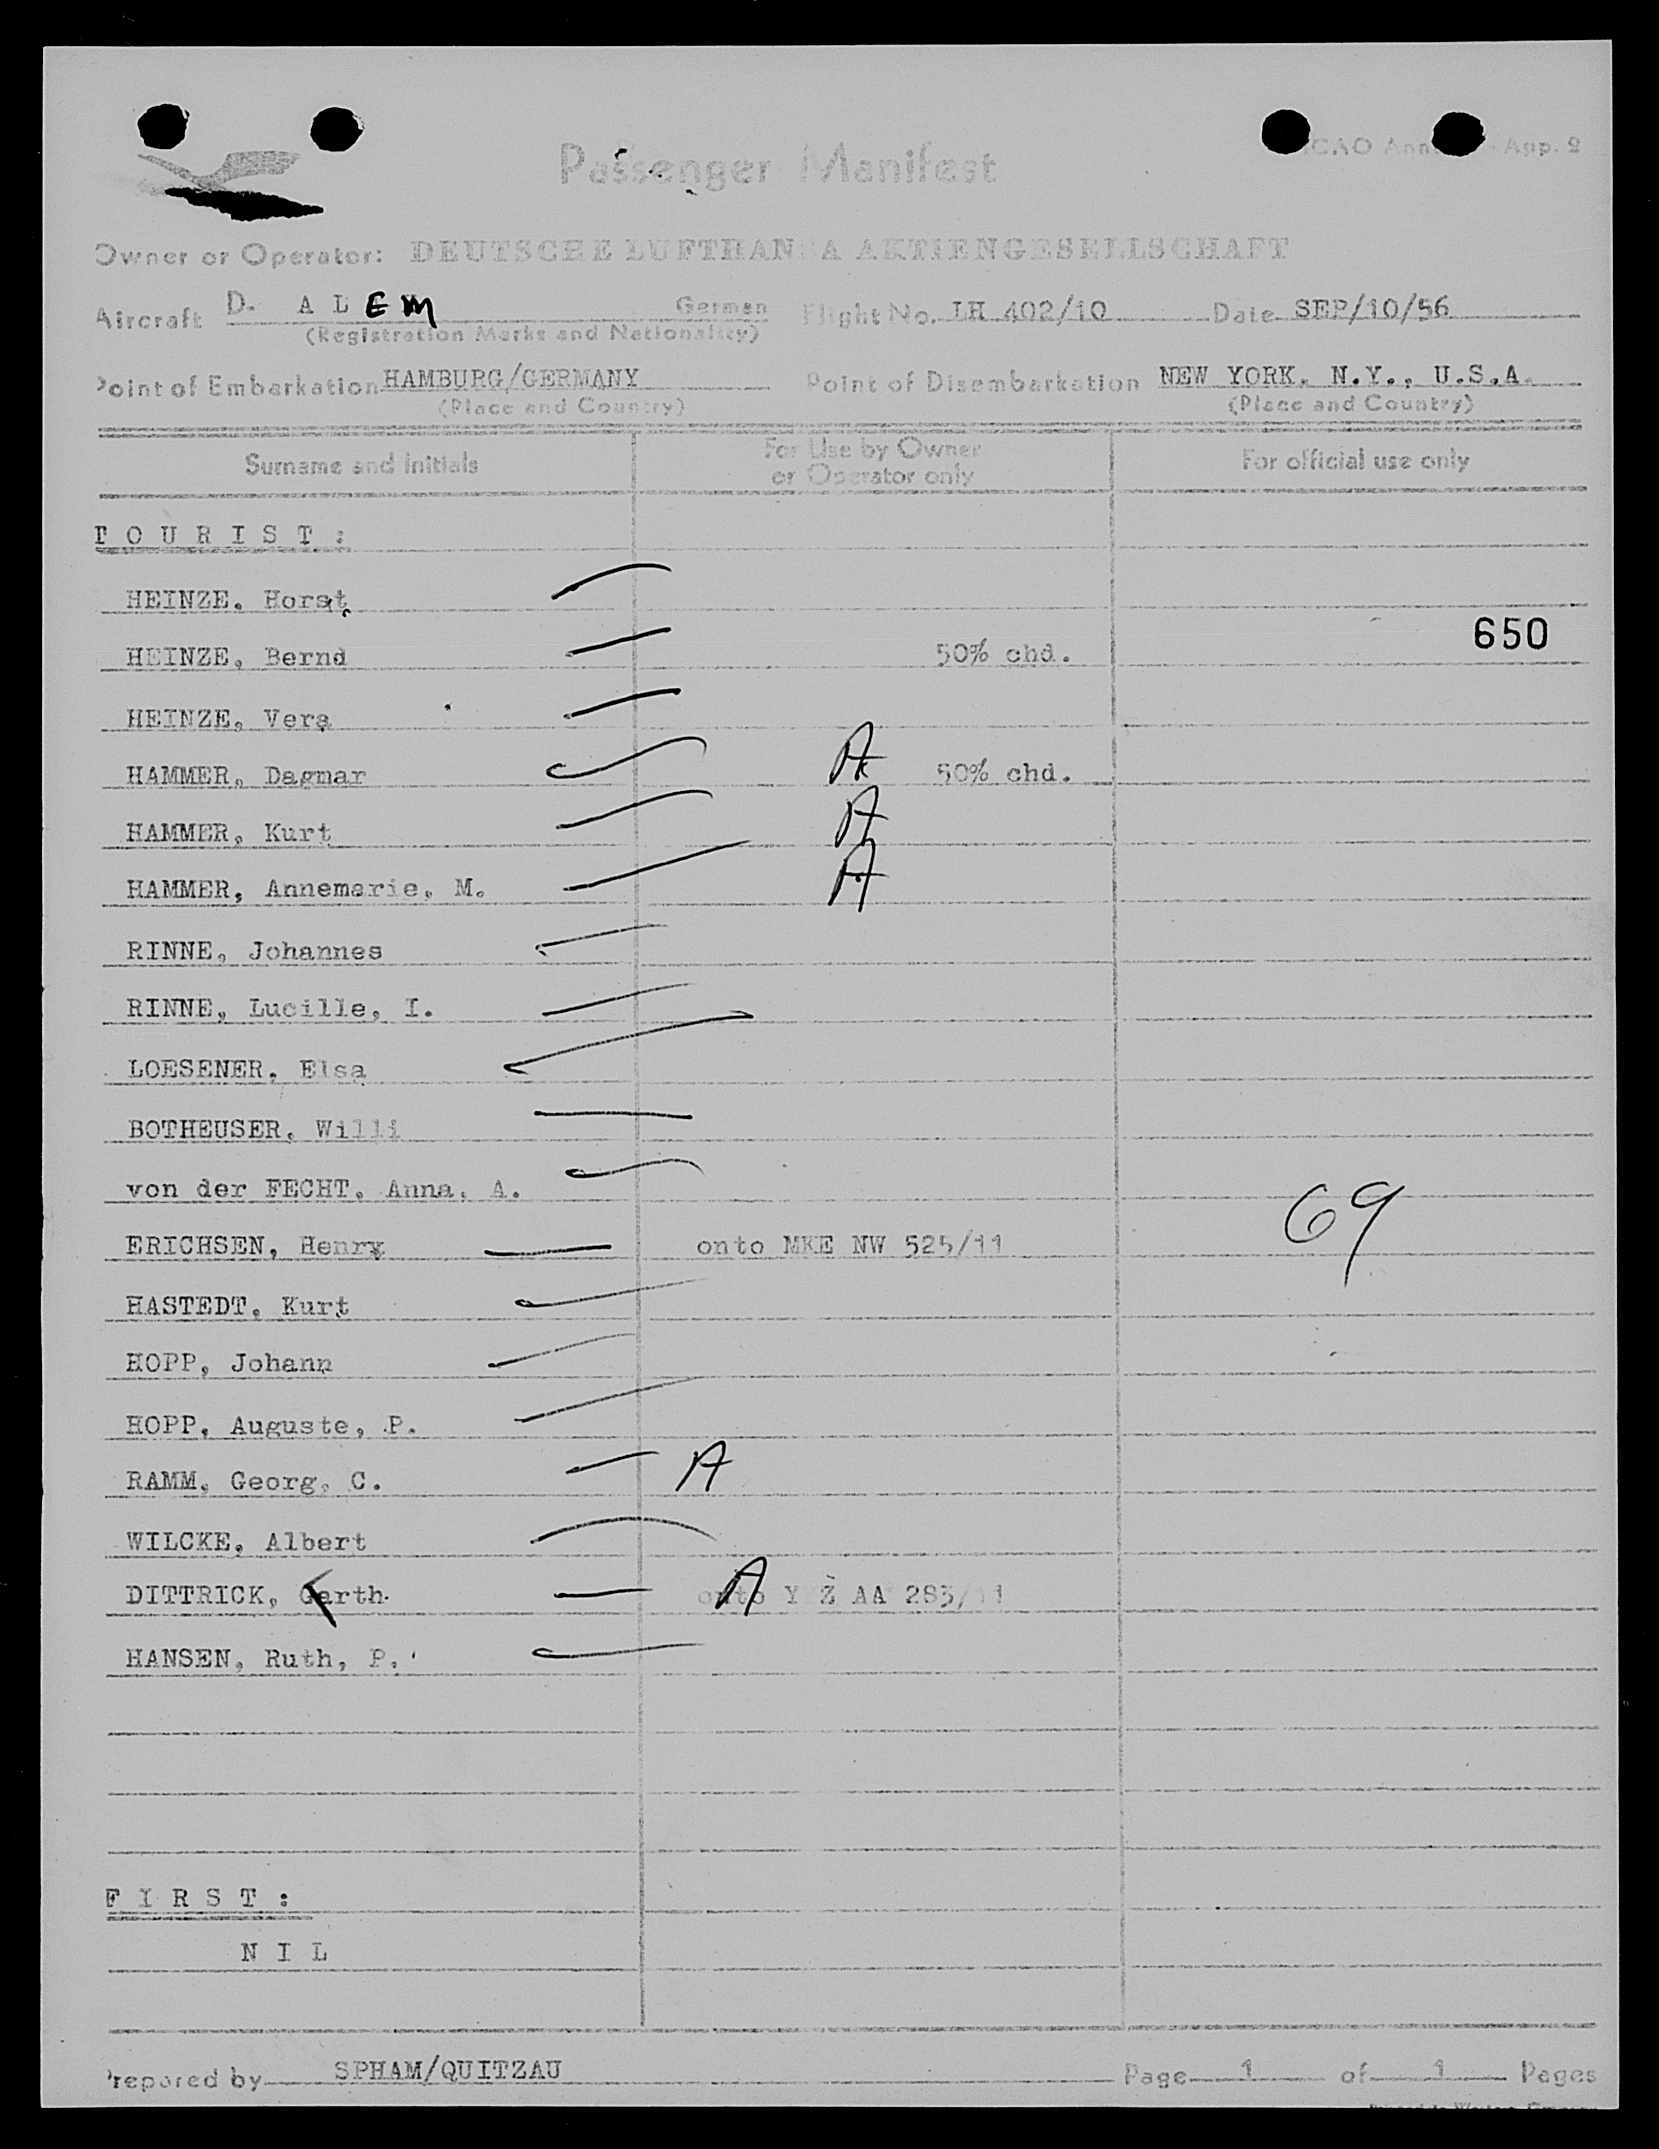 Passenger Manifest
ICAO App. 2
Owner or Operator: DEUTSCHE LUFTHANSA AKTIENGESELLSCHAFT
Aircraft D- A L E M German Flight No. LH 402/10 Date SEP/10/56
(Registration Marks and Nationality)
Point of Embarkation HAMBURG/GERMANY Point of Disembarkation NEW YORK, N.Y., U.S.A.
(Place and Country) (Place and Country)
Surname and initials For Use by Owner or Operator only For official use only
T O U R I S T :
HEINZE, Horst
650
HEINZE, Bernd 50% chd.
HEINZE, Vera
HAMMER, Dagmar A 50% chd.
HAMMER, Kurt A
HAMMER, Annemarie, M. A
RINNE, Johannes
RINNE, Lucille, I.
LOESENER, Elsa
BOTHEUSER, Willi
von der FECHT, Anna, A.
69
ERICHSEN, Henry onto MKE NW 525/11
HASTEDT, Kurt
HOPP, Johann
HOPP, Auguste, P.
RAMM, Georg, C. A
WILCKE, Albert
DITTRICK, Garth A onto Y Z AA 283/11
HANSEN, Ruth, P.
F I R S T :
N I L
Prepared by SPHAM/QUITZAU Page 1 of 1 Pages